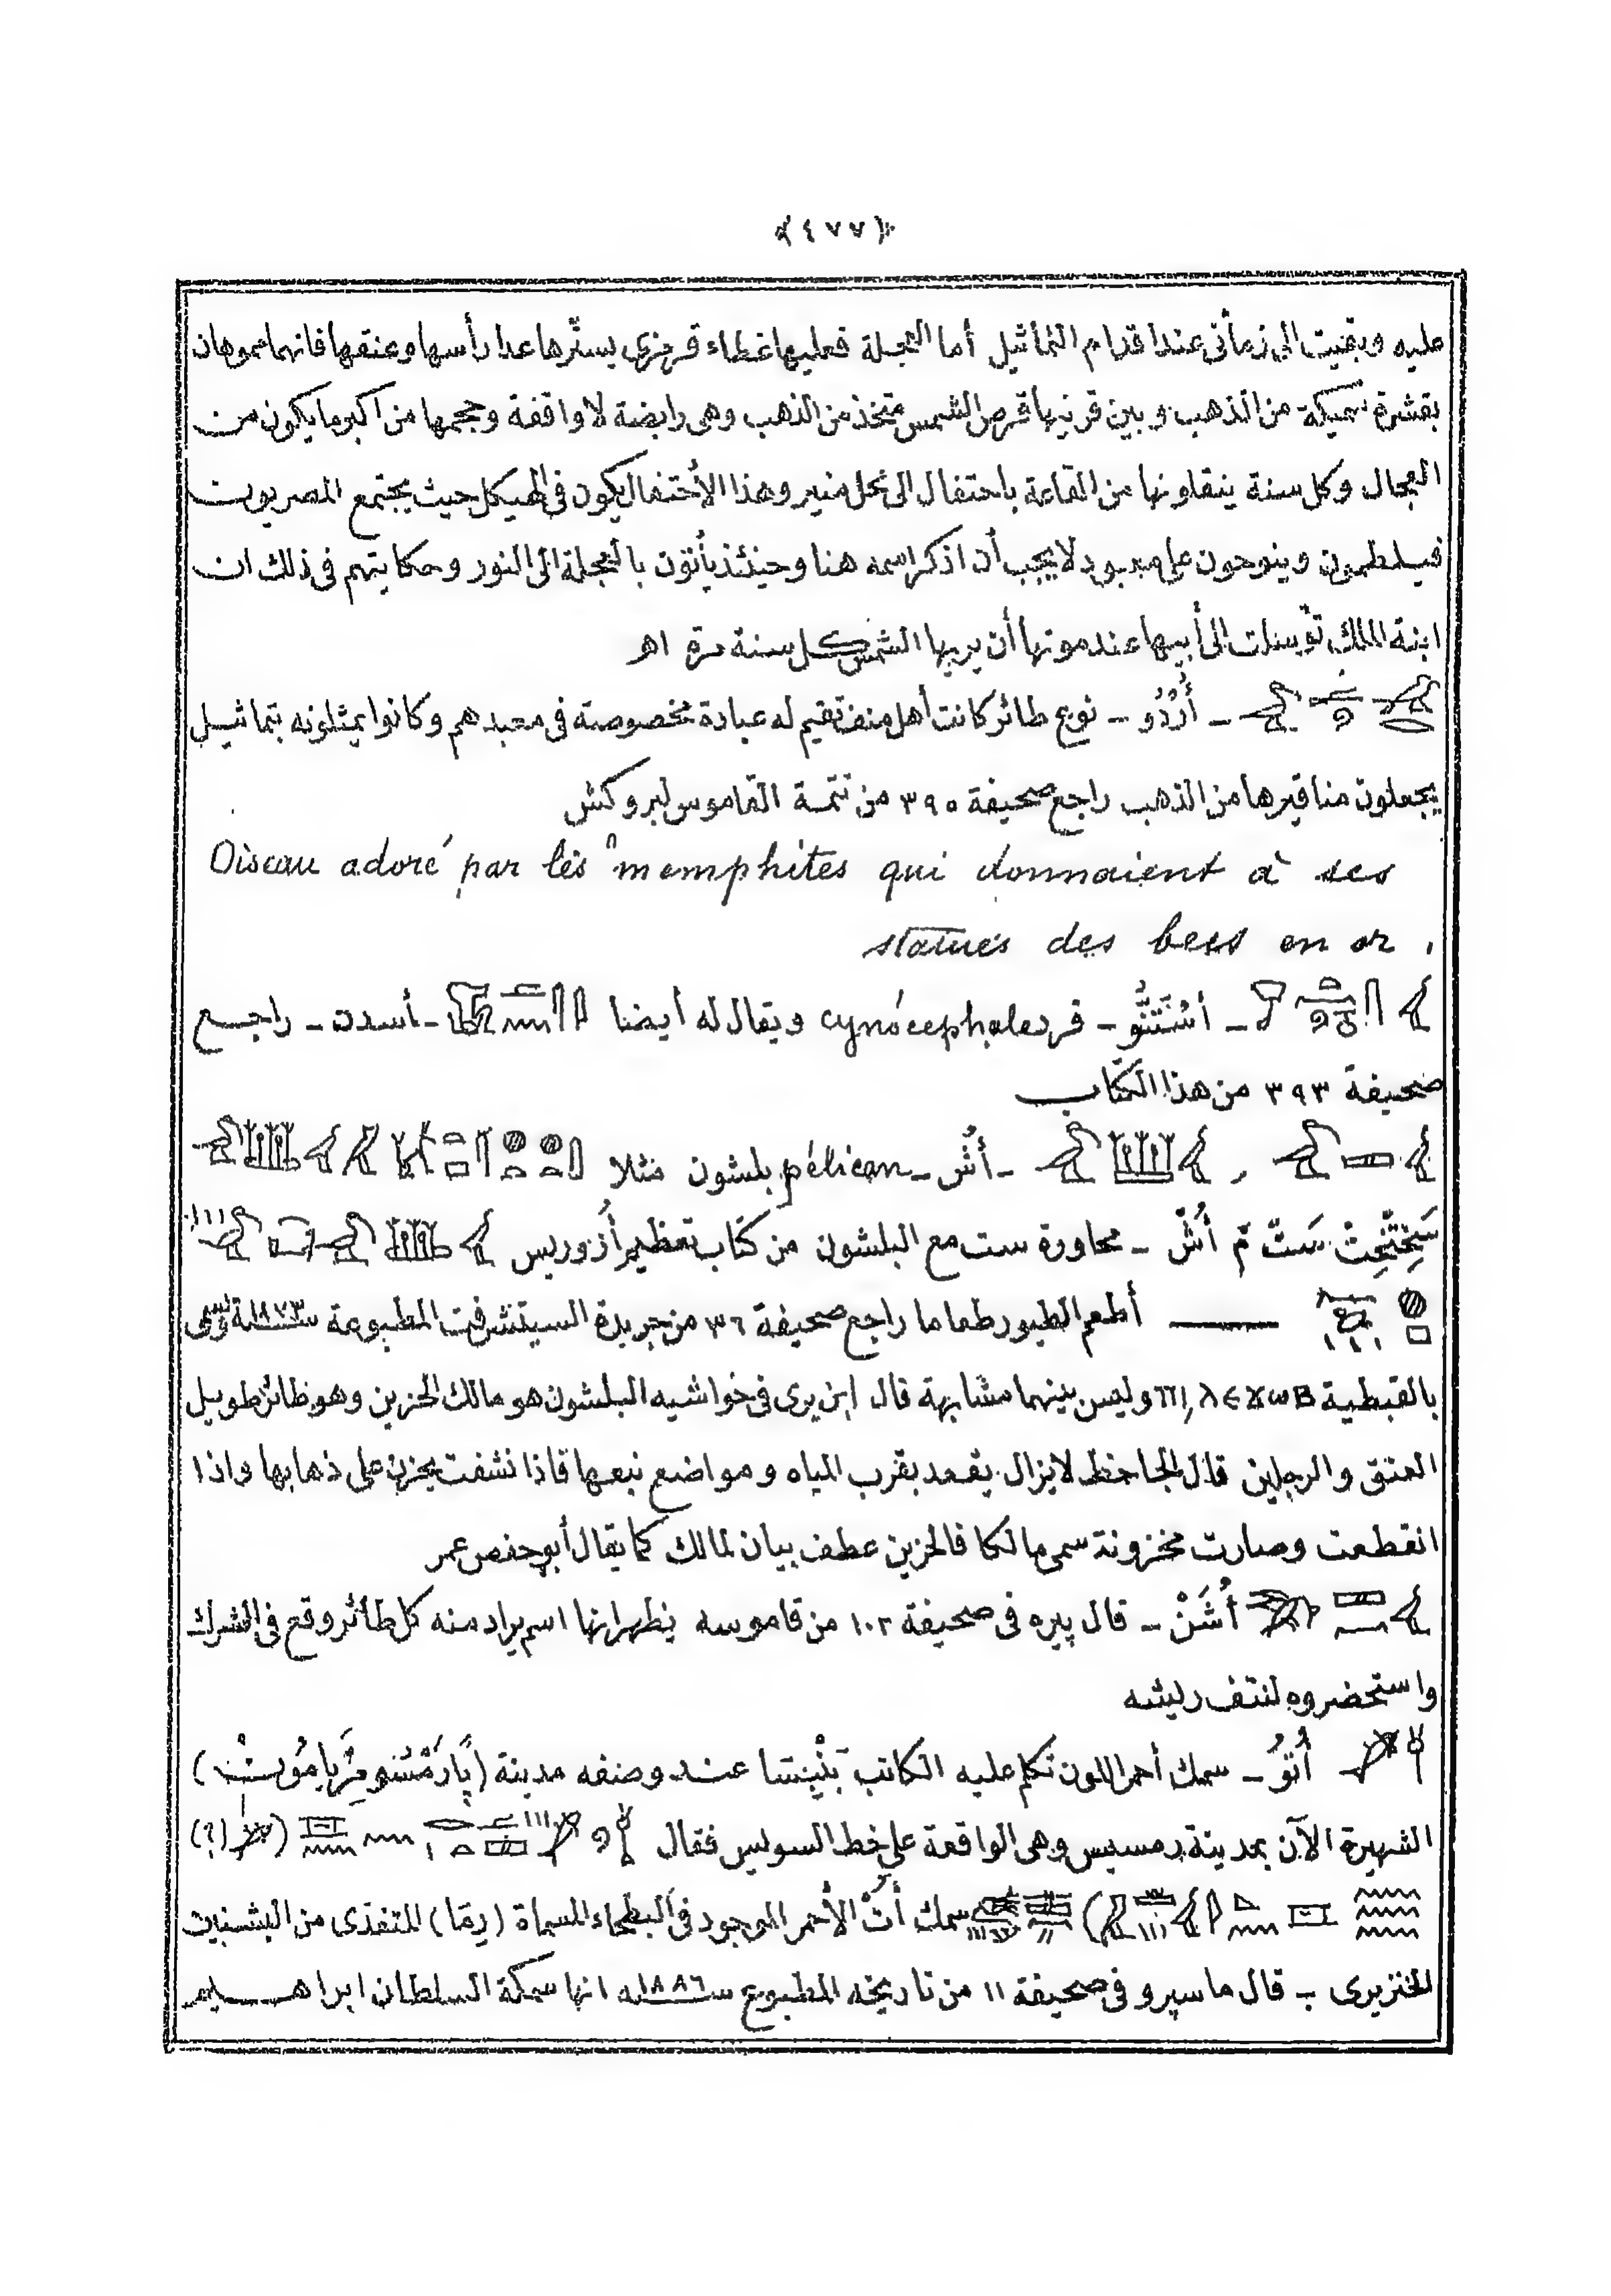 ﴿٤٧٧﴾
عليه وبقيت الى زمانى عند اقدام التماثيل أما العجلة فعليها غطاء قرمزى يسترها عدا رأسها وعنقها فانهما مموهان
بقشرة سميكة من الذهب وبين قرنيها قرص الشمس متخذ من الذهب وهى رابضة لا واقفة وحجمها من اكبر ما يكون من
العجال وكل سنة ينقلونها من القاعة باحتفال الى محل منير وهذا الأحتفال يكون فى الهيكل حيث يجتمع المصريون
فيلطمون وينوحون على معبود لا يجب أن اذكر اسمه هنا وحينئذ يأتون بالعجلة الى النور وحكايتهم فى ذلك ان
ابنة الملك توسلت الى أبيها عند موتها أن يريها الشمس كل سنة مرة اهـ
ـ أُرْدُو ـ نوع طائر كانت أهل منف تقيم له عبادة مخصوصة فى معبدهم وكانوا يمثلونه بتماثيل
يجعلون مناقيرها من الذهب راجع صحيفة ٣٩٥ من تتمة القاموس لبروكش
Oiseau adoré par les memphites qui donnaient à ses
statues des becs en or .
ـ أسْتَنُّو ـ قرد cynocephale ويقال له أيضا ـ أسدن ـ راجع
صحيفة ٣٩٣ من هذا الكتاب
, ـ أُشْ ـ pélican بلشون مثلا
سَتْ مَ أُشْ ـ محاورة ست مع البلشون من كتاب تعظيم أزوريس
ــــ أطعم الطيور طعاما راجع صحيفة ٣٦ من جريدة السيتشرفت المطبوعة سنة ١٨٧٣
بالقبطية وليس بينهما مشابهة قال ابن برى فى حواشيه البلشون هو مالك الحزين وهو طائر طويل
العنق والرجلين قال الجاحظ لا يزال يقعد بقرب المياه ومواضع نبعها فاذا نشفت يحزن على ذهابها واذا
انقطعت وصارت مخزونة سمى مالكا فالحزين عطف بيان لمالك كما يقال أبو حفص عمر
أُشَنْ ـ قال پيره فى صحيفة ١٠٢ من قاموسه يظهر انها اسم يراد منه كل طائر وقع فى الشرك
واستحضروه لنتف ريشه
أُتوُ ـ سمك أحمر اللون تكلم عليه الكاتب عند وصفه مدينة
الشهيرة الآن بمدينة رمسيس وهى الواقعة على خط السويس فقال (?)
سمك أتْ الأحمر الموجود فى البطحاء المسماة المتغذى من البشنين
الخنزيرى ـ قال ماسپرو فى صحيفة ١١ من تاريخه المطبوع سنة ١٨٨٦ انها سمكة السلطان ابراهيم